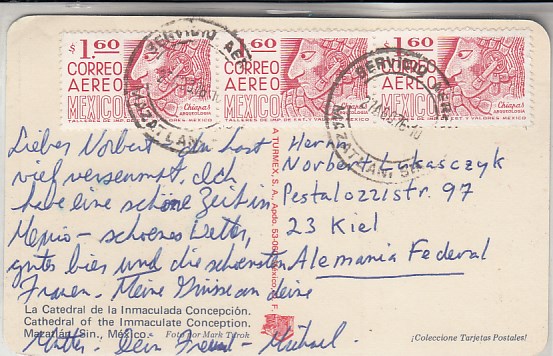 $1.60
CORREO
AEREO
MEXICO
Chiapas
ARQUEOLOGIA
$1.60
CORREO
AEREO
MEXICO
Chiapas
ARQUEOLOGIA
TALLERES DE IMP. DE EST. Y VALORES-MEXICO
1.60
CORREO
AEREO
MEXICO
Chiapas
ARQUEOLOGIA
SERVICIO AEREO
SERVICIO AEREO
MAZATLAN, SIN
Lieber Norbert - du hast
viel versäumt. Ich
habe eine schöne Zeit in
Mexico - schoenes Wetter,
gutes bier und die schoensten
Frauen. Meine Grüsse an deine
Mutter. Dein Freund - Michael.
Herrn
Norbert Lukasczyk
Pestalozzistr. 97
23 Kiel
Alemania Federal
A TURMEX, S. A., Apdo. 53-06
La Catedral de la Inmaculada Concepción.
Cathedral of the Immaculate Conception.
Mazatlán, Sin., México.
Foto por Mark Turok
¡Coleccione Tarjetas Postales!